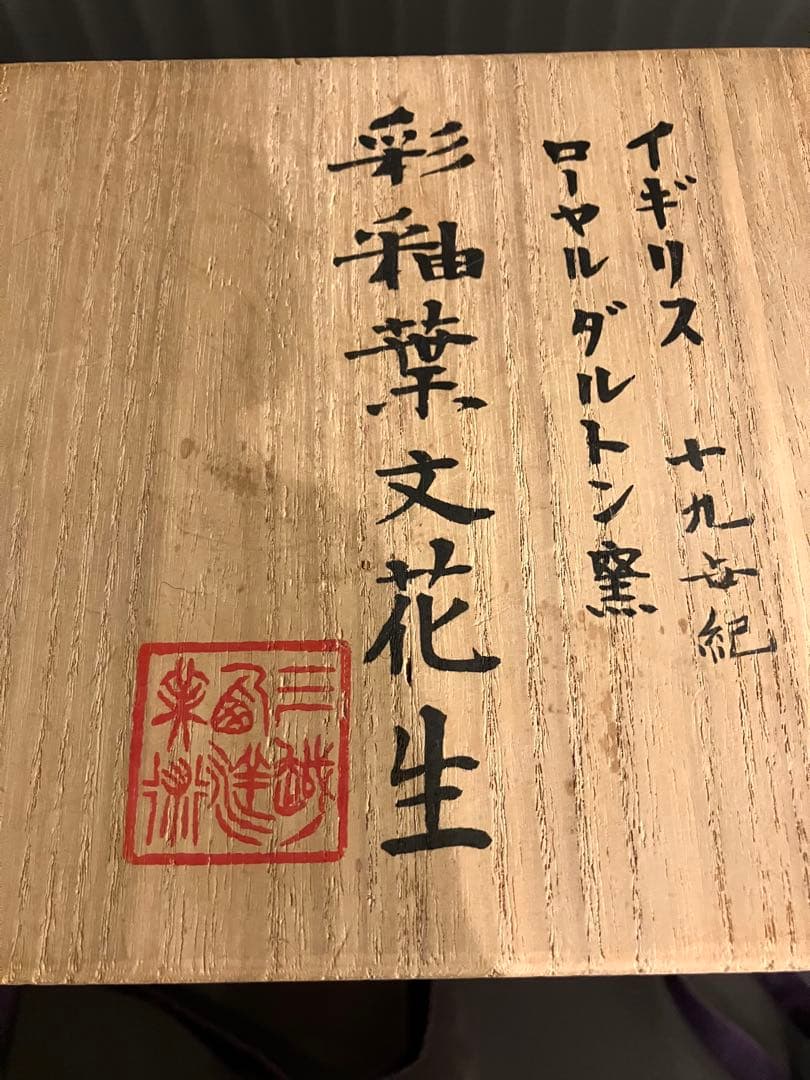 イギリス 十九世紀
ローヤルダルトン窯
彩釉葉文花生
三越
西洋
美術